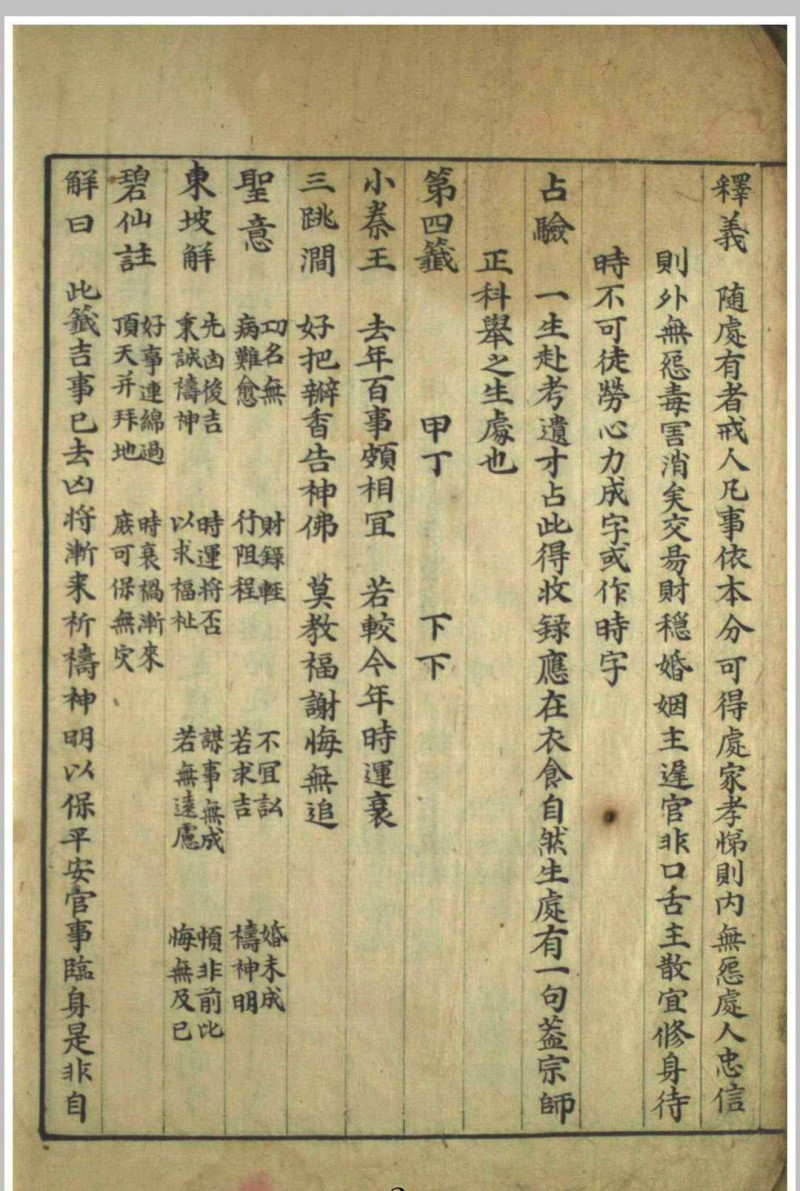 釋義　随處有者戒人凡事依本分可得處家孝悌則内無惡處人忠信
則外無惡毒害消矣交易財穏婚姻主遲官非口舌主散宜修身待
時不可徒勞心力成字或作時字
占驗　一生赴考遺才占此得收録應在衣食自然生處有一句蓋宗師
正科舉之生處也
第四籤　甲丁　下下
小秦王　去年百事頗相宜　若較今年時運衰
三跳澗　好把辦香告神佛　莫教福謝悔無追
聖意　功名無　財録軽　不宜訟　婚未成
病難愈　行阻程　若求吉　禱神明
東坡解　先凶後吉　時運将否　謀事無成　頓非前比
秉誠禱神　以求福祉　若無遠慮　悔無及已
碧仙註　好事連綿過　時衰禍漸來
頂天并拜地　庶可保無灾
解曰　此籤吉事已去凶将漸来祈禱神明以保平安官事臨身是非自